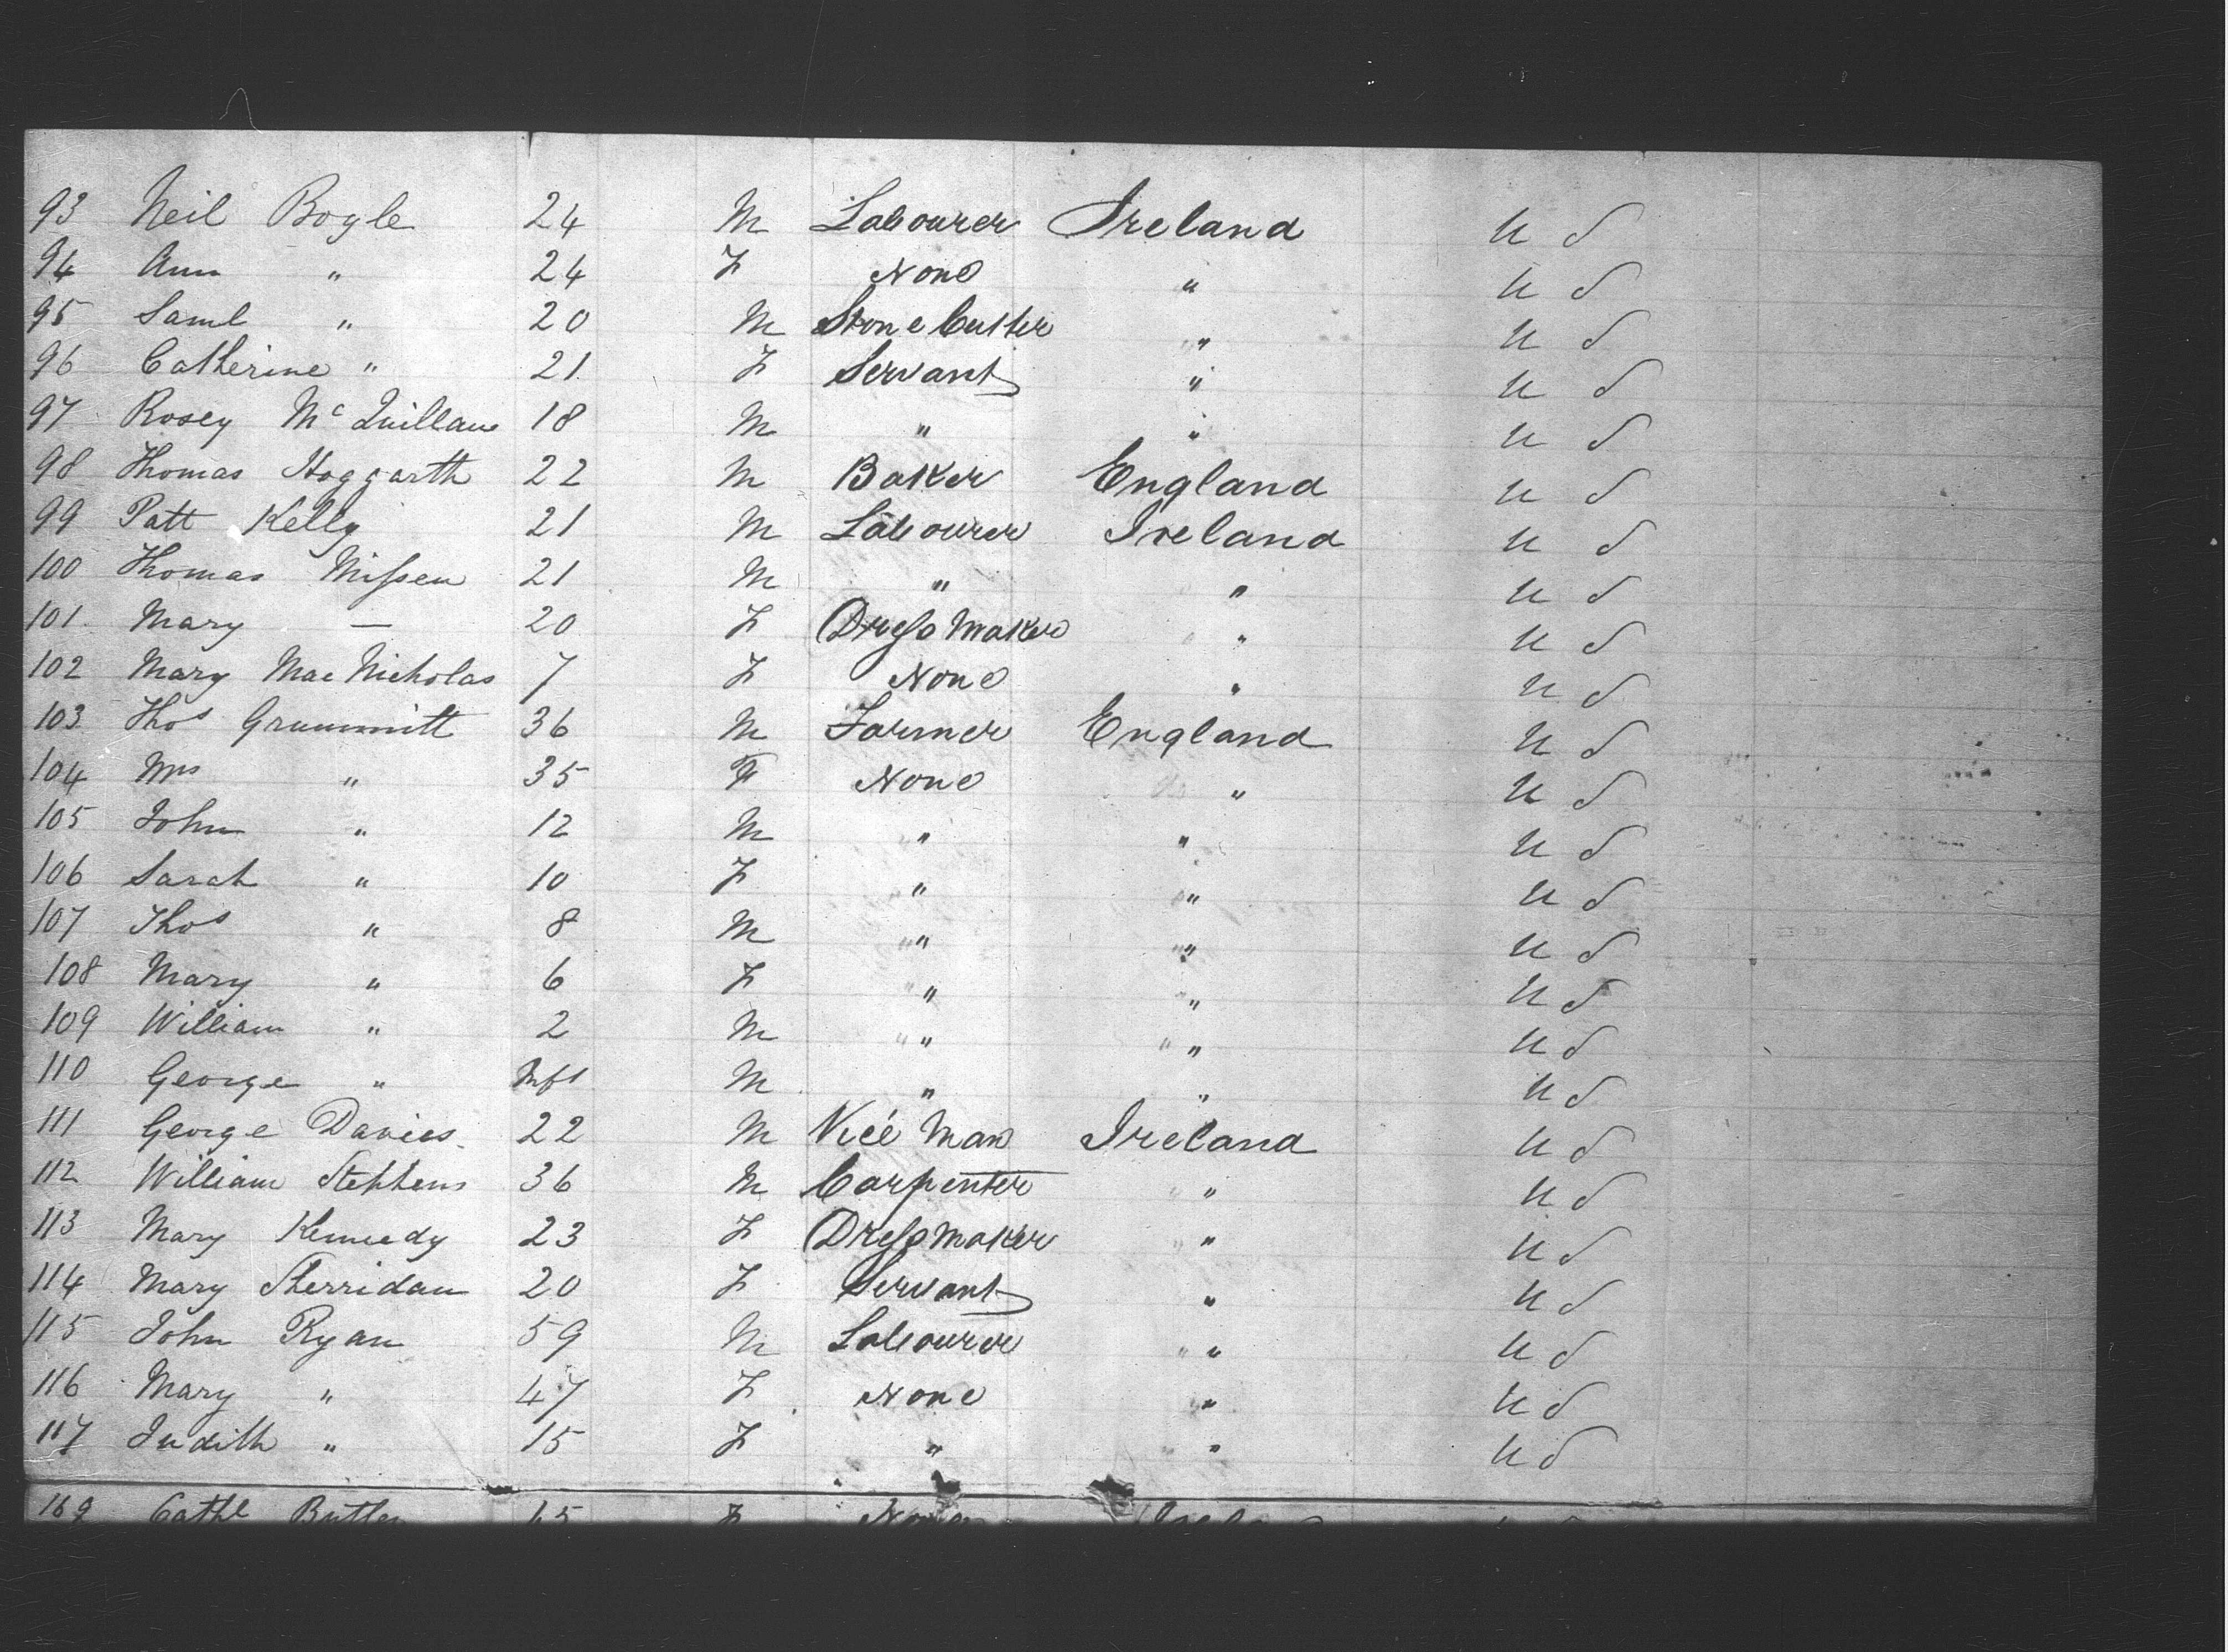 93 Neil Boyle 24 M Labourer Ireland U S
94 Ann " 24 F None " U S
95 Saml " 20 M Stone Cutter " U S
96 Catherine " 21 F Servant " U S
97 Rosey Mc Quillan 18 M " " U S
98 Thomas Hoggarth 22 M Baker England U S
99 Patt Kelly 21 M Labourer Ireland U S
100 Thomas Nissen 21 M " " U S
101 Mary — 20 F Dress Maker " U S
102 Mary Mac Nicholas 7 F None " U S
103 Thos Grummitt 36 M Farmer England U S
104 Mrs " 35 F None " U S
105 John " 12 M " " U S
106 Sarah " 10 F " " U S
107 Thos " 8 M " " U S
108 Mary " 6 F " " U S
109 William " 2 M " " U S
110 George " Inft M " " U S
111 George Davies 22 M Vice Man Ireland U S
112 William Stephens 36 M Carpenter " U S
113 Mary Kennedy 23 F Dressmaker " U S
114 Mary Sherridan 20 F Servant " U S
115 John Ryan 59 M Labourer " U S
116 Mary " 47 F None " U S
117 Judith " 15 F " " U S
169 Cathe Butler F None